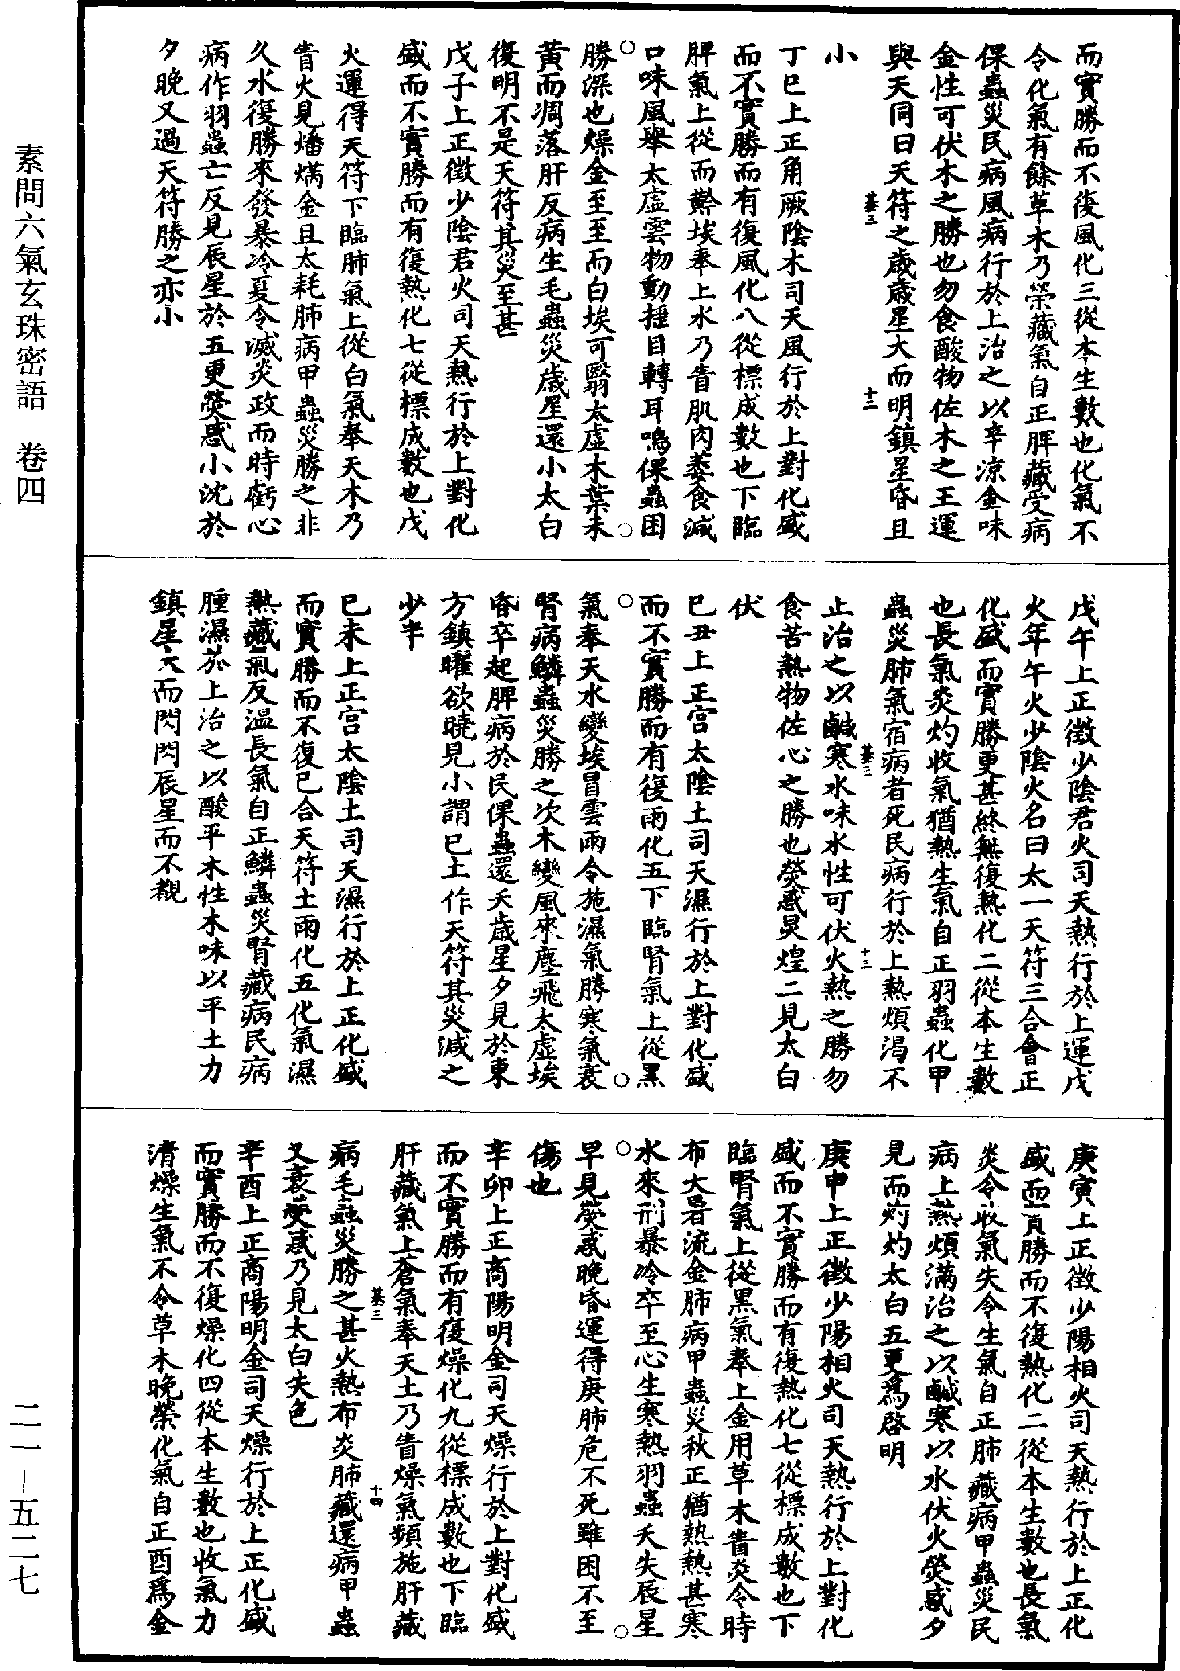 素問六氣玄珠密語　卷四
而實勝而不復風化三從本生數也化氣不
令化氣有餘草木乃榮藏氣自正脾藏受病
倮蟲災民病風病行於上治之以辛涼金味
金性可伏木之勝也勿食酸物佐木之王運
與天同曰天符之歲歲星大而明鎮星昏且
碁三
十二
小
丁巳上正角厥陰木司天風行於上對化盛
而不實勝而有復風化八從標成數也下臨
脾氣上從而黅埃奉上水乃眚肌肉萎食減
口味風舉太虛雲物動揺目轉耳鳴倮蟲困
勝深也燥金至至而白埃可翳太虛木葉未
黃而凋落肝反病生毛蟲災歲星還小太白
復明不是天符其災至甚
戊子上正徵少陰君火司天熱行於上對化
盛而不實勝而有復熱化七從標成數也戊
火運得天符下臨肺氣上從白氣奉天木乃
眚火見燔焫金且太耗肺病甲蟲災勝之非
久水復勝來發暴冷夏令減炎政而時虧心
病作羽蟲亡反見辰星於五更熒惑小沈於
夕晚又過天符勝之亦小
戊午上正徵少陰君火司天熱行於上運戊
火年午火少陰火名曰太一天符三合會正
化盛而實勝更甚終無復熱化二從本生數
也長氣炎灼收氣猶熱生氣自正羽蟲化甲
蟲災肺氣宿病者死民病行於上熱煩渴不
碁三
十三
止治之以鹹寒水味水性可伏火熱之勝勿
食苦熱物佐心之勝也熒惑炅煌二見太白
伏
巳丑上正宮太陰土司天濕行於上對化盛
而不實勝而有復雨化五下臨腎氣上從黑
氣奉天水變埃冒雲雨令施濕氣勝寒氣衰
腎病鱗蟲災勝之次木變風來塵飛太虛埃
昏卒起脾病於民倮蟲還夭歲星夕見於東
方鎮曜欲曉見小謂巳土作天符其災減之
少半
巳未上正宮太陰土司天濕行於上正化盛
而實勝而不復巳合天符土雨化五化氣濕
熱藏氣反溫長氣自正鱗蟲災腎藏病民病
腫濕於上治之以酸平木性木味以平土力
鎮星大而閃閃辰星而不覩
庚寅上正徵少陽相火司天熱行於上正化
盛而實勝而不復熱化二從本生數也長氣
炎令收氣失令生氣自正肺藏病甲蟲災民
病上熱煩滿治之以鹹寒以水伏火熒惑夕
見而灼灼太白五更為啓明
庚申上正徵少陽相火司天熱行於上對化
盛而不實勝而有復熱化七從標成數也下
臨腎氣上從黑氣奉上金用草木眚炎令時
布大暑流金肺病甲蟲災秋正猶熱熱甚寒
水來刑暴冷卒至心生寒熱羽蟲夭失辰星
早見熒惑晚昏運得庚肺危不死雖困不至
傷也
辛卯上正商陽明金司天燥行於上對化盛
而不實勝而有復燥化九從標成數也下臨
肝藏氣上蒼氣奉天土乃眚燥氣頻施肝藏
碁三
十四
病毛蟲災勝之甚火熱布炎肺藏還病甲蟲
又衰熒惑乃見太白失色
辛酉上正商陽明金司天燥行於上正化盛
而實勝而不復燥化四從本生數也收氣力
清燥生氣不令草木晚榮化氣自正酉為金
二一—五二七